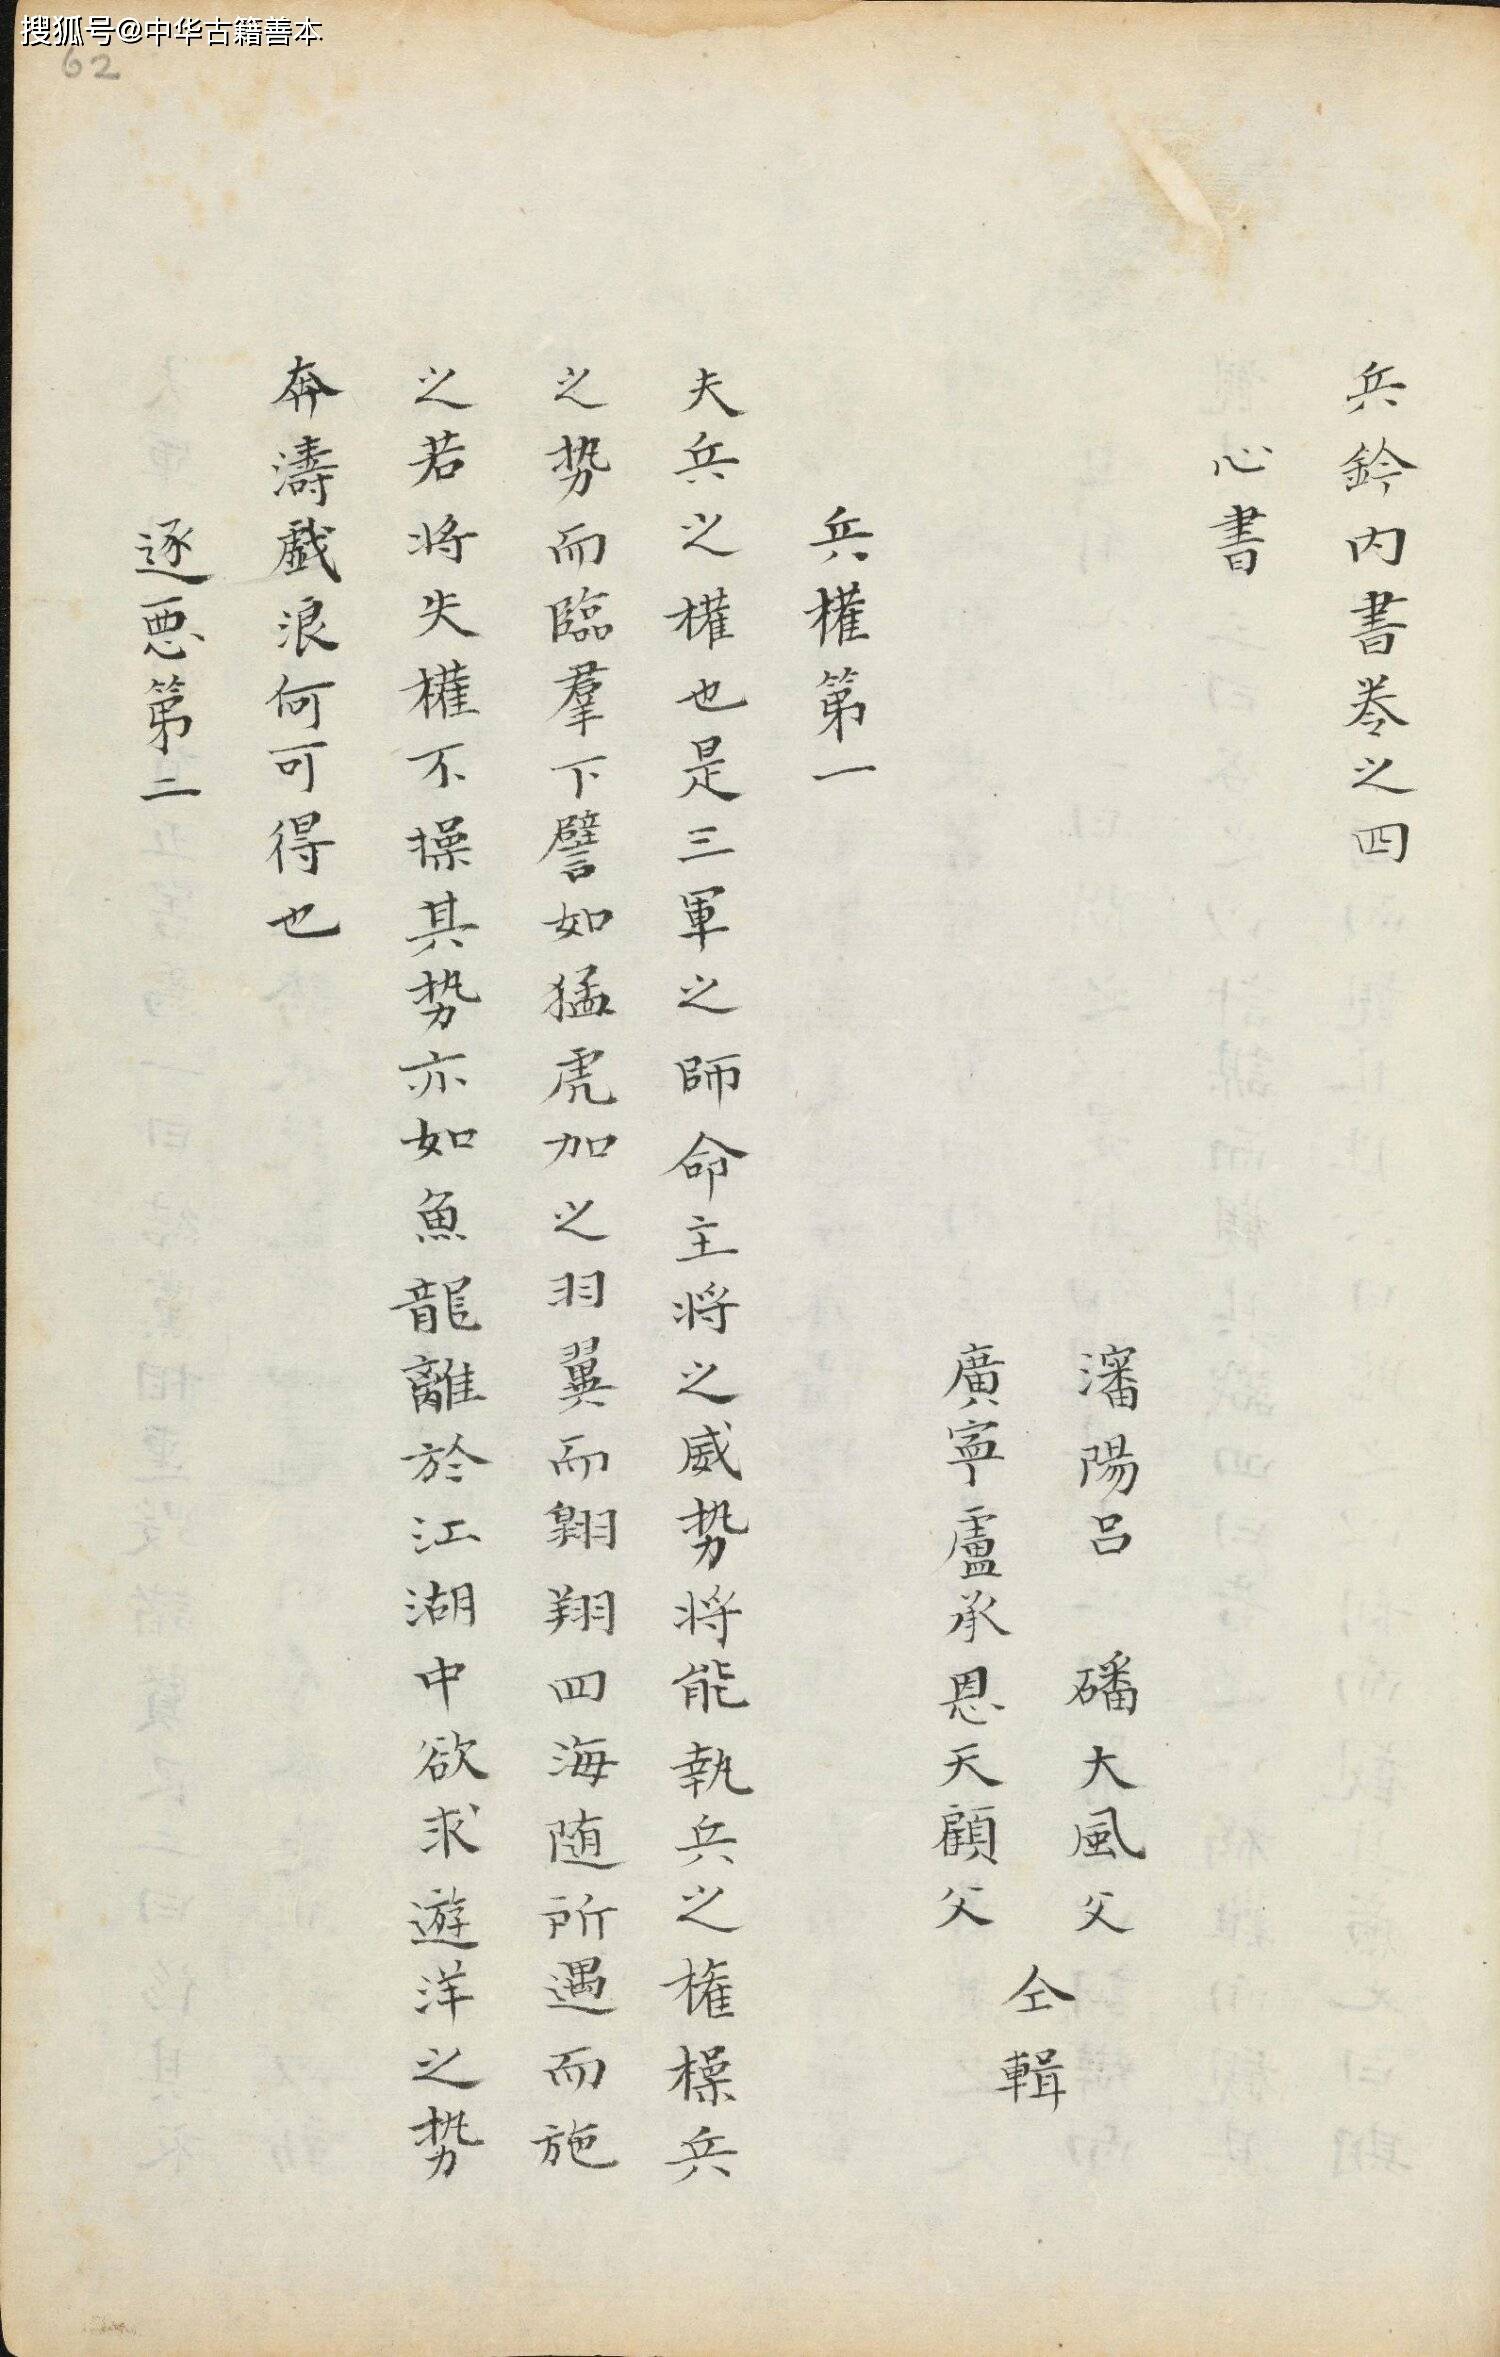 搜狐号@中华古籍善本
62
兵鈐内書卷之四
心書
瀋陽呂　磻大風父
廣寧盧承恩天顧父
仝輯
兵權第一
夫兵之權也是三軍之師命主将之威势将能執兵之權操兵
之势而臨羣下譬如猛虎加之羽翼而翺翔四海随所遇而施
之若将失權不操其势亦如魚龍離於江湖中欲求遊洋之势
奔濤戯浪何可得也
逐悪第二